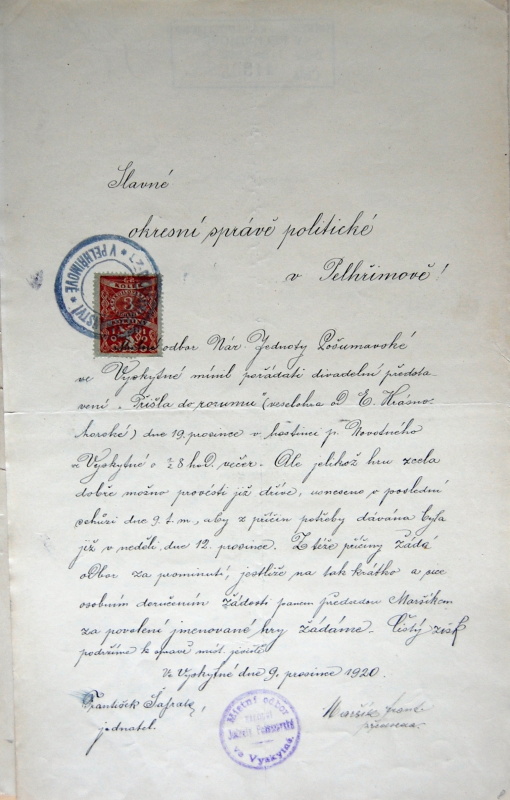 Slavné
okresní správě politické
v Pelhřimově!
V PELHŘIMOVĚ
KOLEK
3
odbor Nár. Jednoty Pošumavské
ve Vyskytné mínil pořádati divadelní předsta-
vení „Přišla do rozumu" (veselohra od E. Krásno-
horské) dne 19. prosince v hostinci p. Novotného
ve Vyskytné o 8 hod. večer. Ale jelikož hru zcela
dobře možno provésti již dříve, usneseno v poslední
schůzi dne 9. t. m., aby z příčin potřeby dávána byla
již v neděli dne 12. prosince. Z téže příčiny žádá
odbor za prominutí, jestliže na tak krátko a sice
osobním doručením žádosti panem předsedou Maršíkem
za povolení jmenované hry žádáme. Čistý zisk
podržíme k opravě míst. jeviště.
Ve Vyskytné dne 9. prosince 1920.
František Šafratě,
jednatel.
Místní odbor
Jednoty Pošumavské
ve Vyskytné.
Maršík
předseda